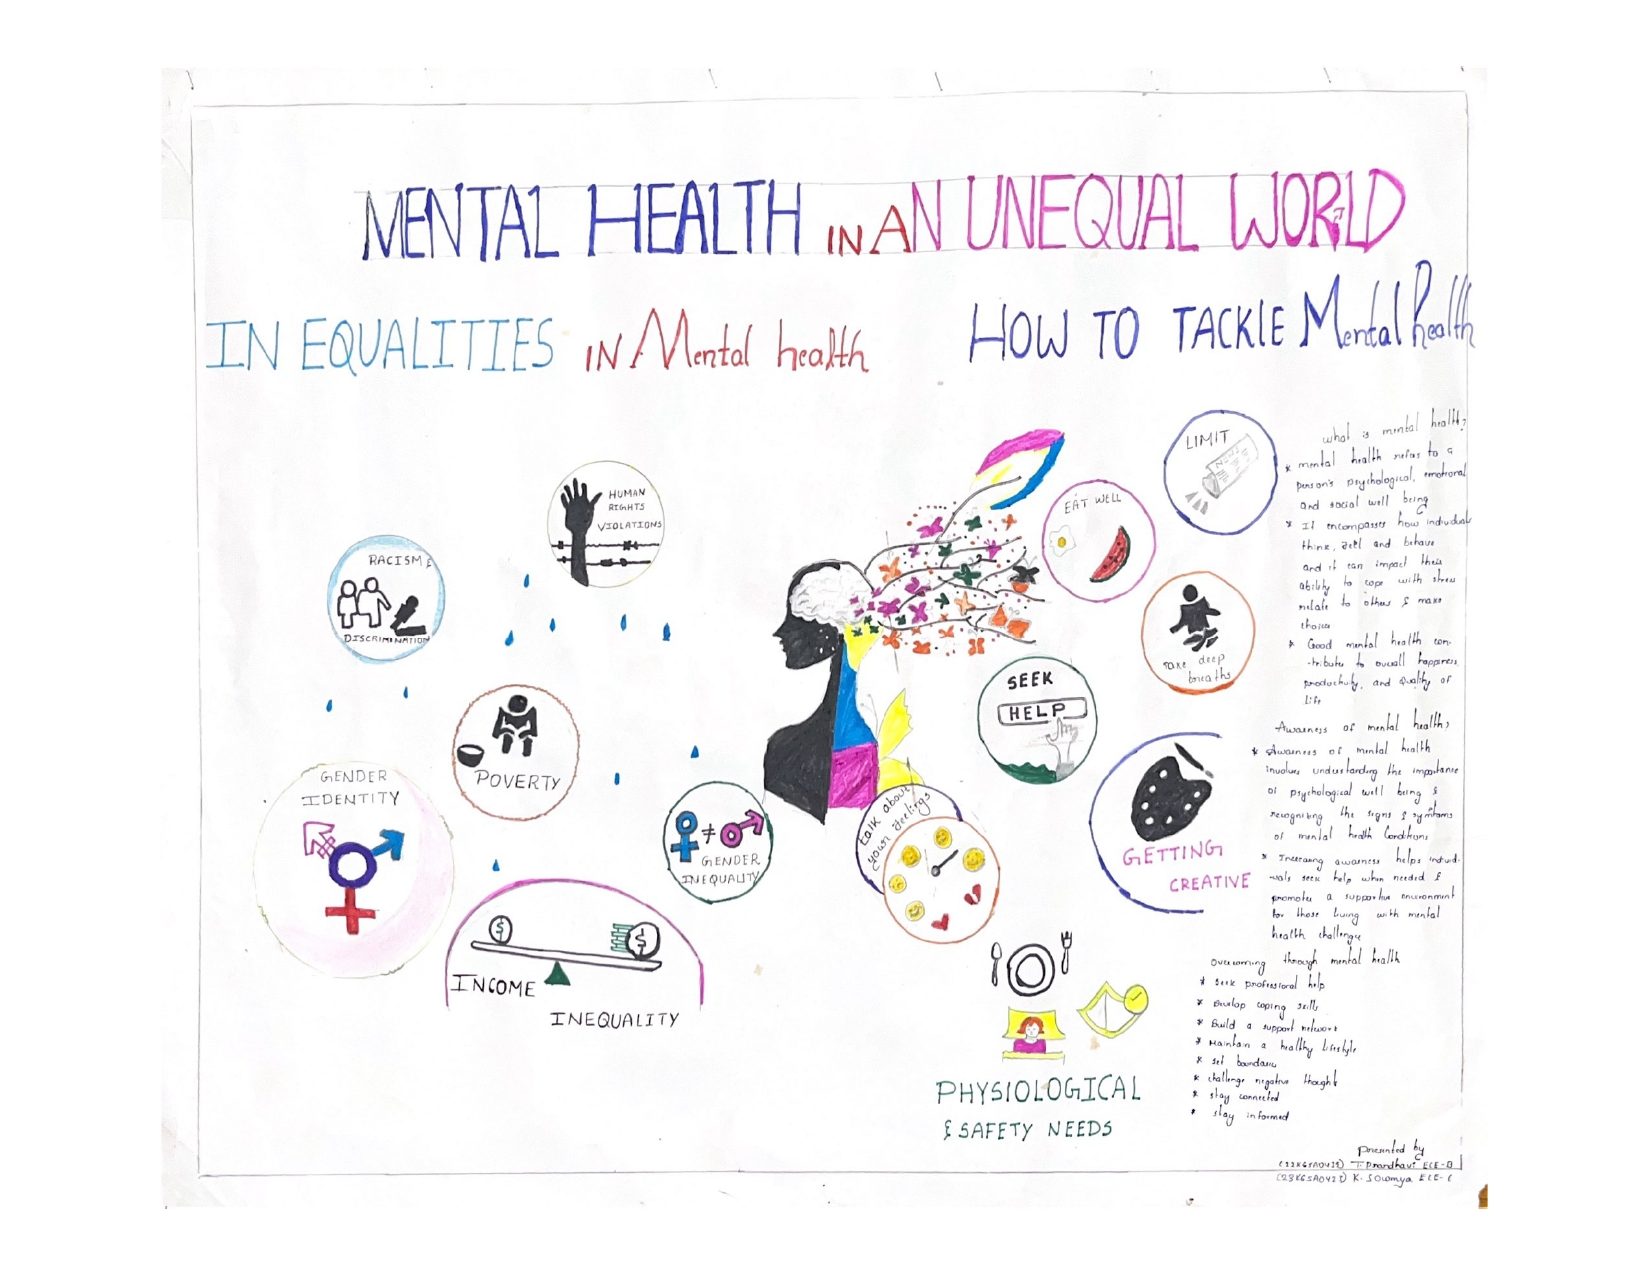 MENTAL HEALTH IN AN UNEQUAL WORLD
IN EQUALITIES IN Mental health
HOW TO TACKLE Mental Health
HUMAN
RIGHTS
VIOLATIONS
RACISM &
DISCRIMINATION
POVERTY
GENDER
IDENTITY
≠
GENDER
INEQUALITY
$
$
INCOME
INEQUALITY
LIMIT
NEWS
EAT WELL
Take deep
breaths
SEEK
HELP
talk about
your feelings
GETTING
CREATIVE
PHYSIOLOGICAL
& SAFETY NEEDS
what is mental health?
* mental health refers to a
person's psychological, emotional
and social well being
* It encompasses how individuals
think, feel and behave
and it can impact their
ability to cope with stress
relate to others & make
choice
* Good mental health con-
-tributes to overall happiness,
productivity, and quality of
life
Awarness of mental health,
* Awarness of mental health
involves understanding the importance
of psychological well being &
recognising the signs & symptoms
of mental health conditions
* Increasing awarness helps individ-
uals seek help when needed &
promotes a supportive environment
for those living with mental
health challenge
Overcoming through mental health
* Seek professional help
* Develop coping skills
* Build a support network
* Maintain a healthy lifestyle
* set boundaries
* challenge negative thoughts
* stay connected
* stay informed
presented by
T. Prardhavi ECE-B
K. Sowmya ECE-C